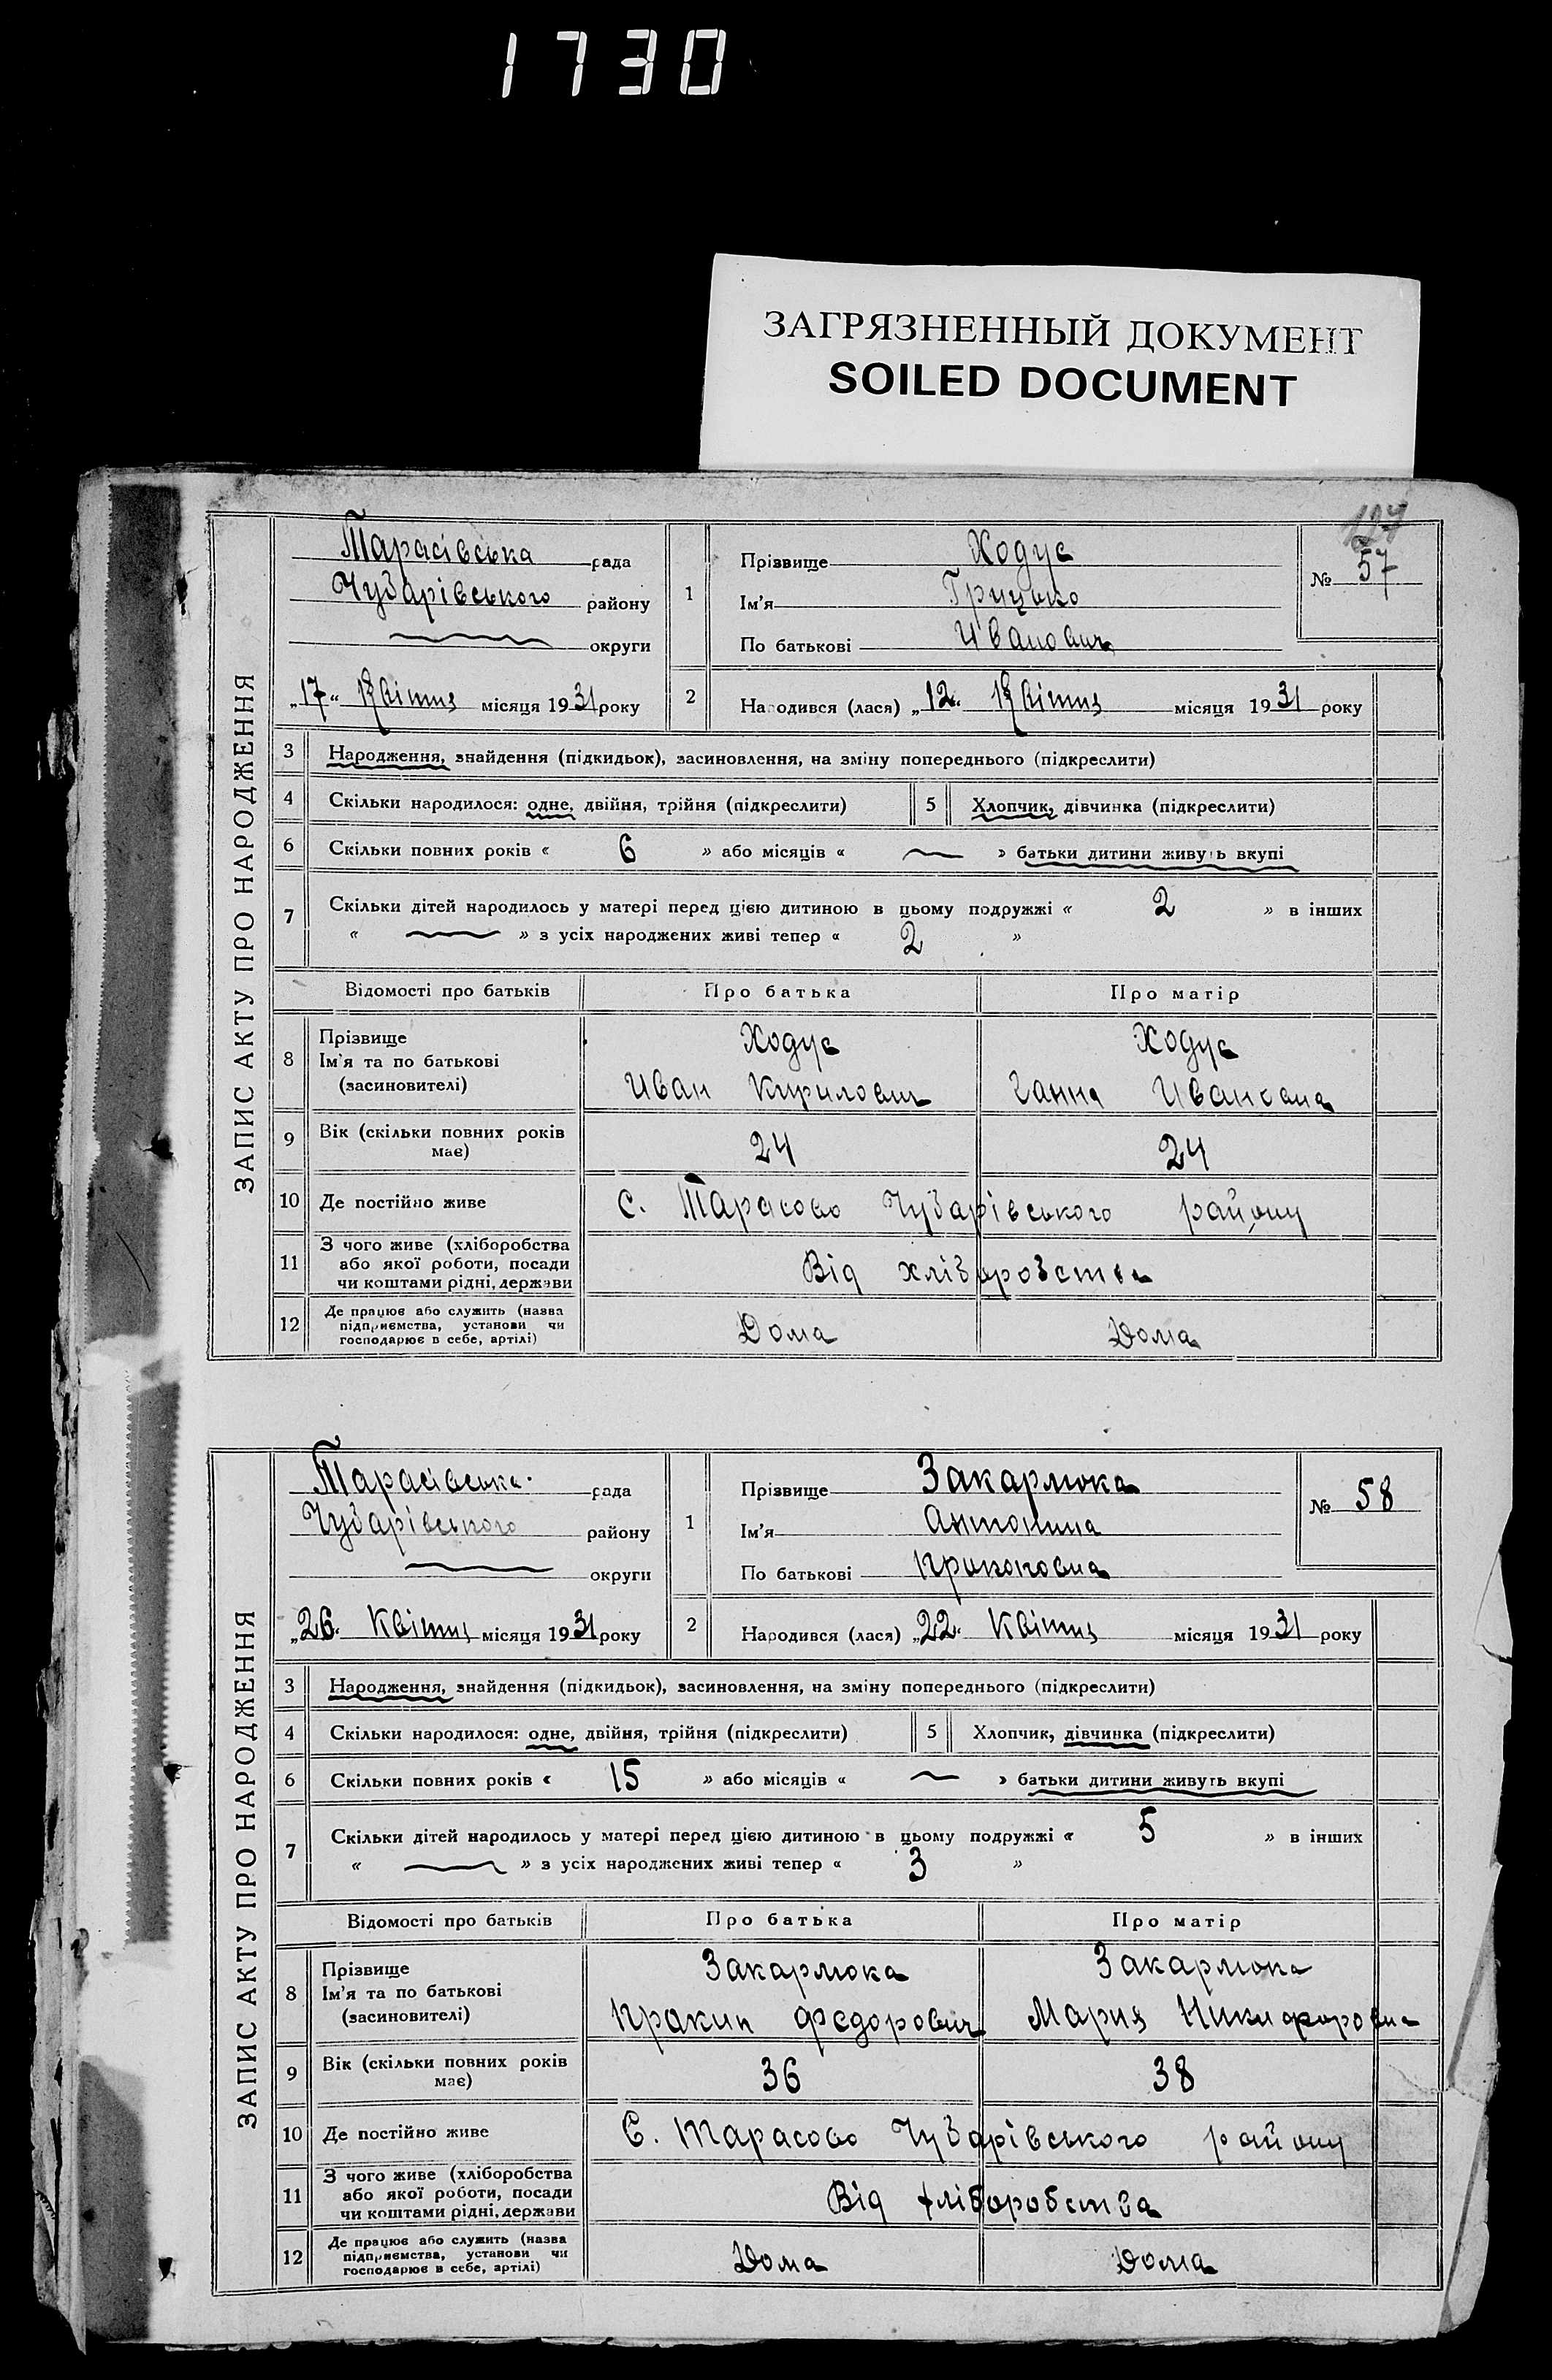 1730
ЗАГРЯЗНЕННЫЙ ДОКУМЕНТ
SOILED DOCUMENT
127
ЗАПИС АКТУ ПРО НАРОДЖЕННЯ
Тарасівська рада
Чубарівського району
округи
„17“ Квітня місяця 1931 року
1
Прізвище Ходус
Ім'я Грицько
По батькові Иванович
№ 57
2
Народився (лася) „12“ Квітня місяця 1931 року
3 Народження, знайдення (підкидьок), засиновлення, на зміну попереднього (підкреслити)
4 Скільки народилося: одне, двійня, трійня (підкреслити) 5 Хлопчик, дівчинка (підкреслити)
6 Скільки повних років « 6 » або місяців « — » батьки дитини живуть вкупі
7 Скільки дітей народилось у матері перед цією дитиною в цьому подружжі « 2 » в інших
« — » з усіх народжених живі тепер « 2 »
Відомості про батьків Про батька Про матір
8 Прізвище
Ім'я та по батькові
(засиновителі)
Ходус Ходус
Иван Кирилович Ганна Ивановна
9 Вік (скільки повних років
має)
24 24
10 Де постійно живе С. Тарасово Чубарівського району
11 З чого живе (хліборобства
або якої роботи, посади
чи коштами рідні, держави
Від хліборобства
12 Де працює або служить (назва
підприємства, установи чи
господарює в себе, артілі)
Дома Дома
ЗАПИС АКТУ ПРО НАРОДЖЕННЯ
Тарасівська рада
Чубарівського району
округи
„26“ Квітня місяця 1931 року
1
Прізвище Закарлюка
Ім'я Антонина
По батькові Прокоповна
№ 58
2
Народився (лася) „22“ Квітня місяця 1931 року
3 Народження, знайдення (підкидьок), засиновлення, на зміну попереднього (підкреслити)
4 Скільки народилося: одне, двійня, трійня (підкреслити) 5 Хлопчик, дівчинка (підкреслити)
6 Скільки повних років « 15 » або місяців « — » батьки дитини живуть вкупі
7 Скільки дітей народилось у матері перед цією дитиною в цьому подружжі « 5 » в інших
« — » з усіх народжених живі тепер « 3 »
Відомості про батьків Про батька Про матір
8 Прізвище
Ім'я та по батькові
(засиновителі)
Закарлюка Закарлюка
Федорович Мария Никифоровна
9 Вік (скільки повних років
має)
36 38
10 Де постійно живе С. Тарасово Чубарівського району
11 З чого живе (хліборобства
або якої роботи, посади
чи коштами рідні, держави
Від хліборобства
12 Де працює або служить (назва
підприємства, установи чи
господарює в себе, артілі)
Дома Дома